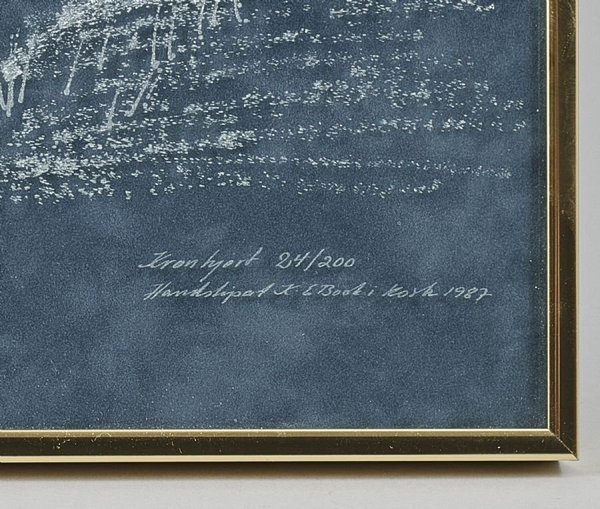 Kronhjort 24/200
Handslipat K E Book i Kosta 1987